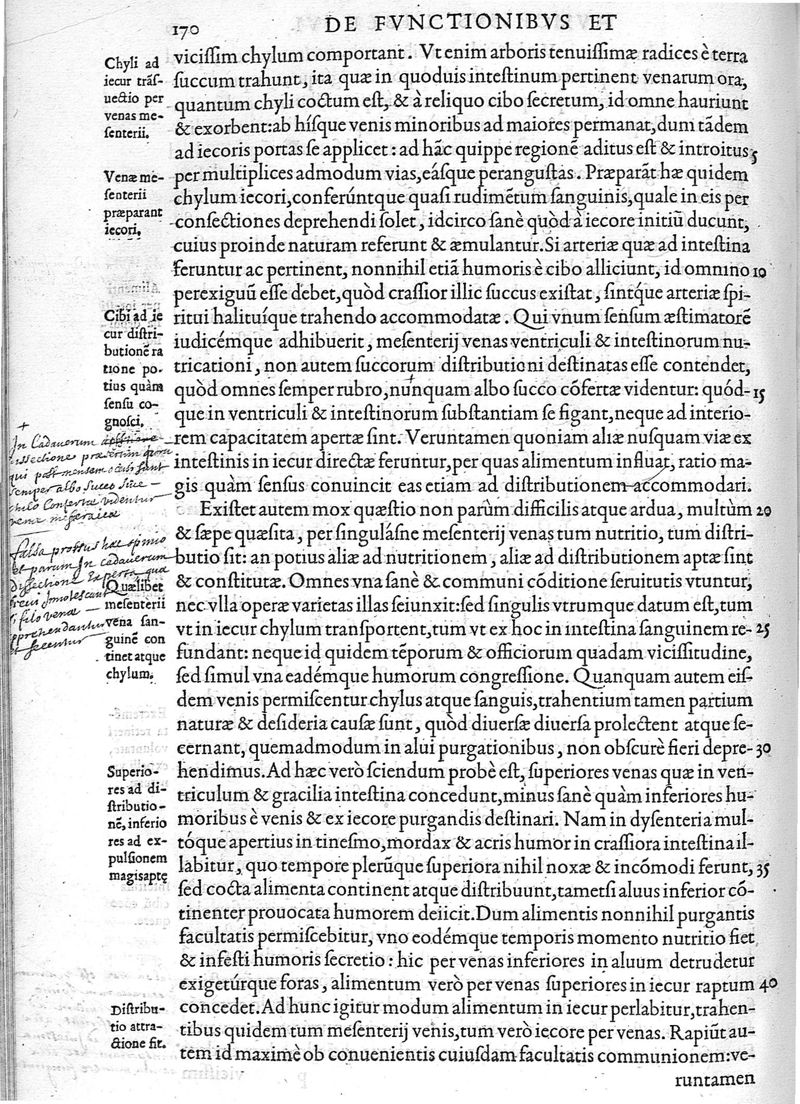 170
DE FVNCTIONIBVS ET
viciſſim chylum comportant. Vt enim arboris tenuiſſimæ radices è terra
ſuccum trahunt, ita quæ in quoduis inteſtinum pertinent venarum ora,
quantum chyli coctum eſt, & à reliquo cibo ſecretum, id omne hauriunt
& exorbent: ab hiſque venis minoribus ad maiores permanat, dum tãdem
ad iecoris portas ſe applicet: ad hãc quippe regionẽ aditus eſt & introitus 5
per multiplices admodum vias, eáſque peranguſtas. Præparãt hæ quidem
chylum iecori, conferúntque quaſi rudimẽtum ſanguinis, quale in eis per
conſectiones deprehendi ſolet, idcirco ſanè quòd à iecore initiũ ducunt,
cuius proinde naturam referunt & æmulantur. Si arteriæ quæ ad inteſtina
feruntur ac pertinent, nonnihil etiã humoris è cibo alliciunt, id omnino 10
perexiguũ eſſe debet, quòd craſſior illic ſuccus exiſtat, ſintq́ue arteriæ ſpi-
ritui halituíque trahendo accommodatæ. Qui vnum ſenſum æſtimatorẽ
iudicémque adhibuerit, meſenterij venas ventriculi & inteſtinorum nu-
tricationi, non autem ſuccorum diſtributioni deſtinatas eſſe contendet,
quòd omnes ſemper rubro, nunquam albo ſucco cõfertæ videntur: quód- 15
que in ventriculi & inteſtinorum ſubſtantiam ſe figant, neque ad interio-
rem capacitatem apertæ ſint. Veruntamen quoniam aliæ nuſquam viæ ex
inteſtinis in iecur directæ feruntur, per quas alimentum influat, ratio ma-
gis quàm ſenſus conuincit eas etiam ad diſtributionem accommodari.
Exiſtet autem mox quæſtio non parùm difficilis atque ardua, multùm 20
& ſæpe quæſita, per ſingulàſne meſenterij venas tum nutritio, tum diſtri-
butio ſit: an potius aliæ ad nutritionem, aliæ ad diſtributionem aptæ ſint
& conſtitutæ. Omnes vna ſanè & communi cõditione ſeruitutis vtuntur,
nec vlla operæ varietas illas ſeiunxit: ſed ſingulis vtrumque datum eſt, tum
vt in iecur chylum tranſportent, tum vt ex hoc in inteſtina ſanguinem re- 25
fundant: neque id quidem tẽporum & officiorum quadam viciſſitudine,
ſed ſimul vna eadémque humorum congreſſione. Quanquam autem eiſ-
dem venis permiſcentur chylus atque ſanguis, trahentium tamen partium
naturæ & deſideria cauſæ ſunt, quòd diuerſæ diuerſa prolectent atque ſe-
cernant, quemadmodum in alui purgationibus, non obſcurè fieri depre- 30
hendimus. Ad hæc verò ſciendum probè eſt, ſuperiores venas quæ in ven-
triculum & gracilia inteſtina concedunt, minus ſanè quàm inferiores hu-
moribus è venis & ex iecore purgandis deſtinari. Nam in dyſenteria mul-
tóque apertius in tineſmo, mordax & acris humor in craſſiora inteſtina il-
labitur, quo tempore plerũque ſuperiora nihil noxæ & incõmodi ferunt, 35
ſed cocta alimenta continent atque diſtribuunt, tametſi aluus inferior cõ-
tinenter prouocata humorem deiicit. Dum alimentis nonnihil purgantis
facultatis permiſcebitur, vno eodémque temporis momento nutritio fiet
& infeſti humoris ſecretio: hic per venas inferiores in aluum detrudetur
exigetúrque foras, alimentum verò per venas ſuperiores in iecur raptum 40
concedet. Ad hunc igitur modum alimentum in iecur perlabitur, trahen-
tibus quidem tum meſenterij venis, tum verò iecore per venas. Rapiũt au-
tem id maximè ob conuenientis cuiuſdam facultatis communionem: ve-
runtamen
Chyli ad
iecur trãſ-
uectio per
venas me-
ſenterij.
Venæ me-
ſenterii
præparant
iecori.
Cibi ad ie
cur diſtri-
butionẽ ra
tione po-
tius quàm
ſenſu co-
gnoſci.
+
In Cadauerum
diſſectione præſertim
qui poſt menſem
ſemper albo ſucco ſiue
chilo conferta videntur
venæ meſeraicæ
falſa prorſus hæc opinio
et parum in cadauerum
diſſectione
Quælibet
meſenterii
vena ſan-
guinẽ con
tinet atque
chylum.
Superio-
res ad di-
ſtributio-
nẽ, inferio
res ad ex-
pulſionem
magis aptę
Diſtribu-
tio attra-
ctione fit.